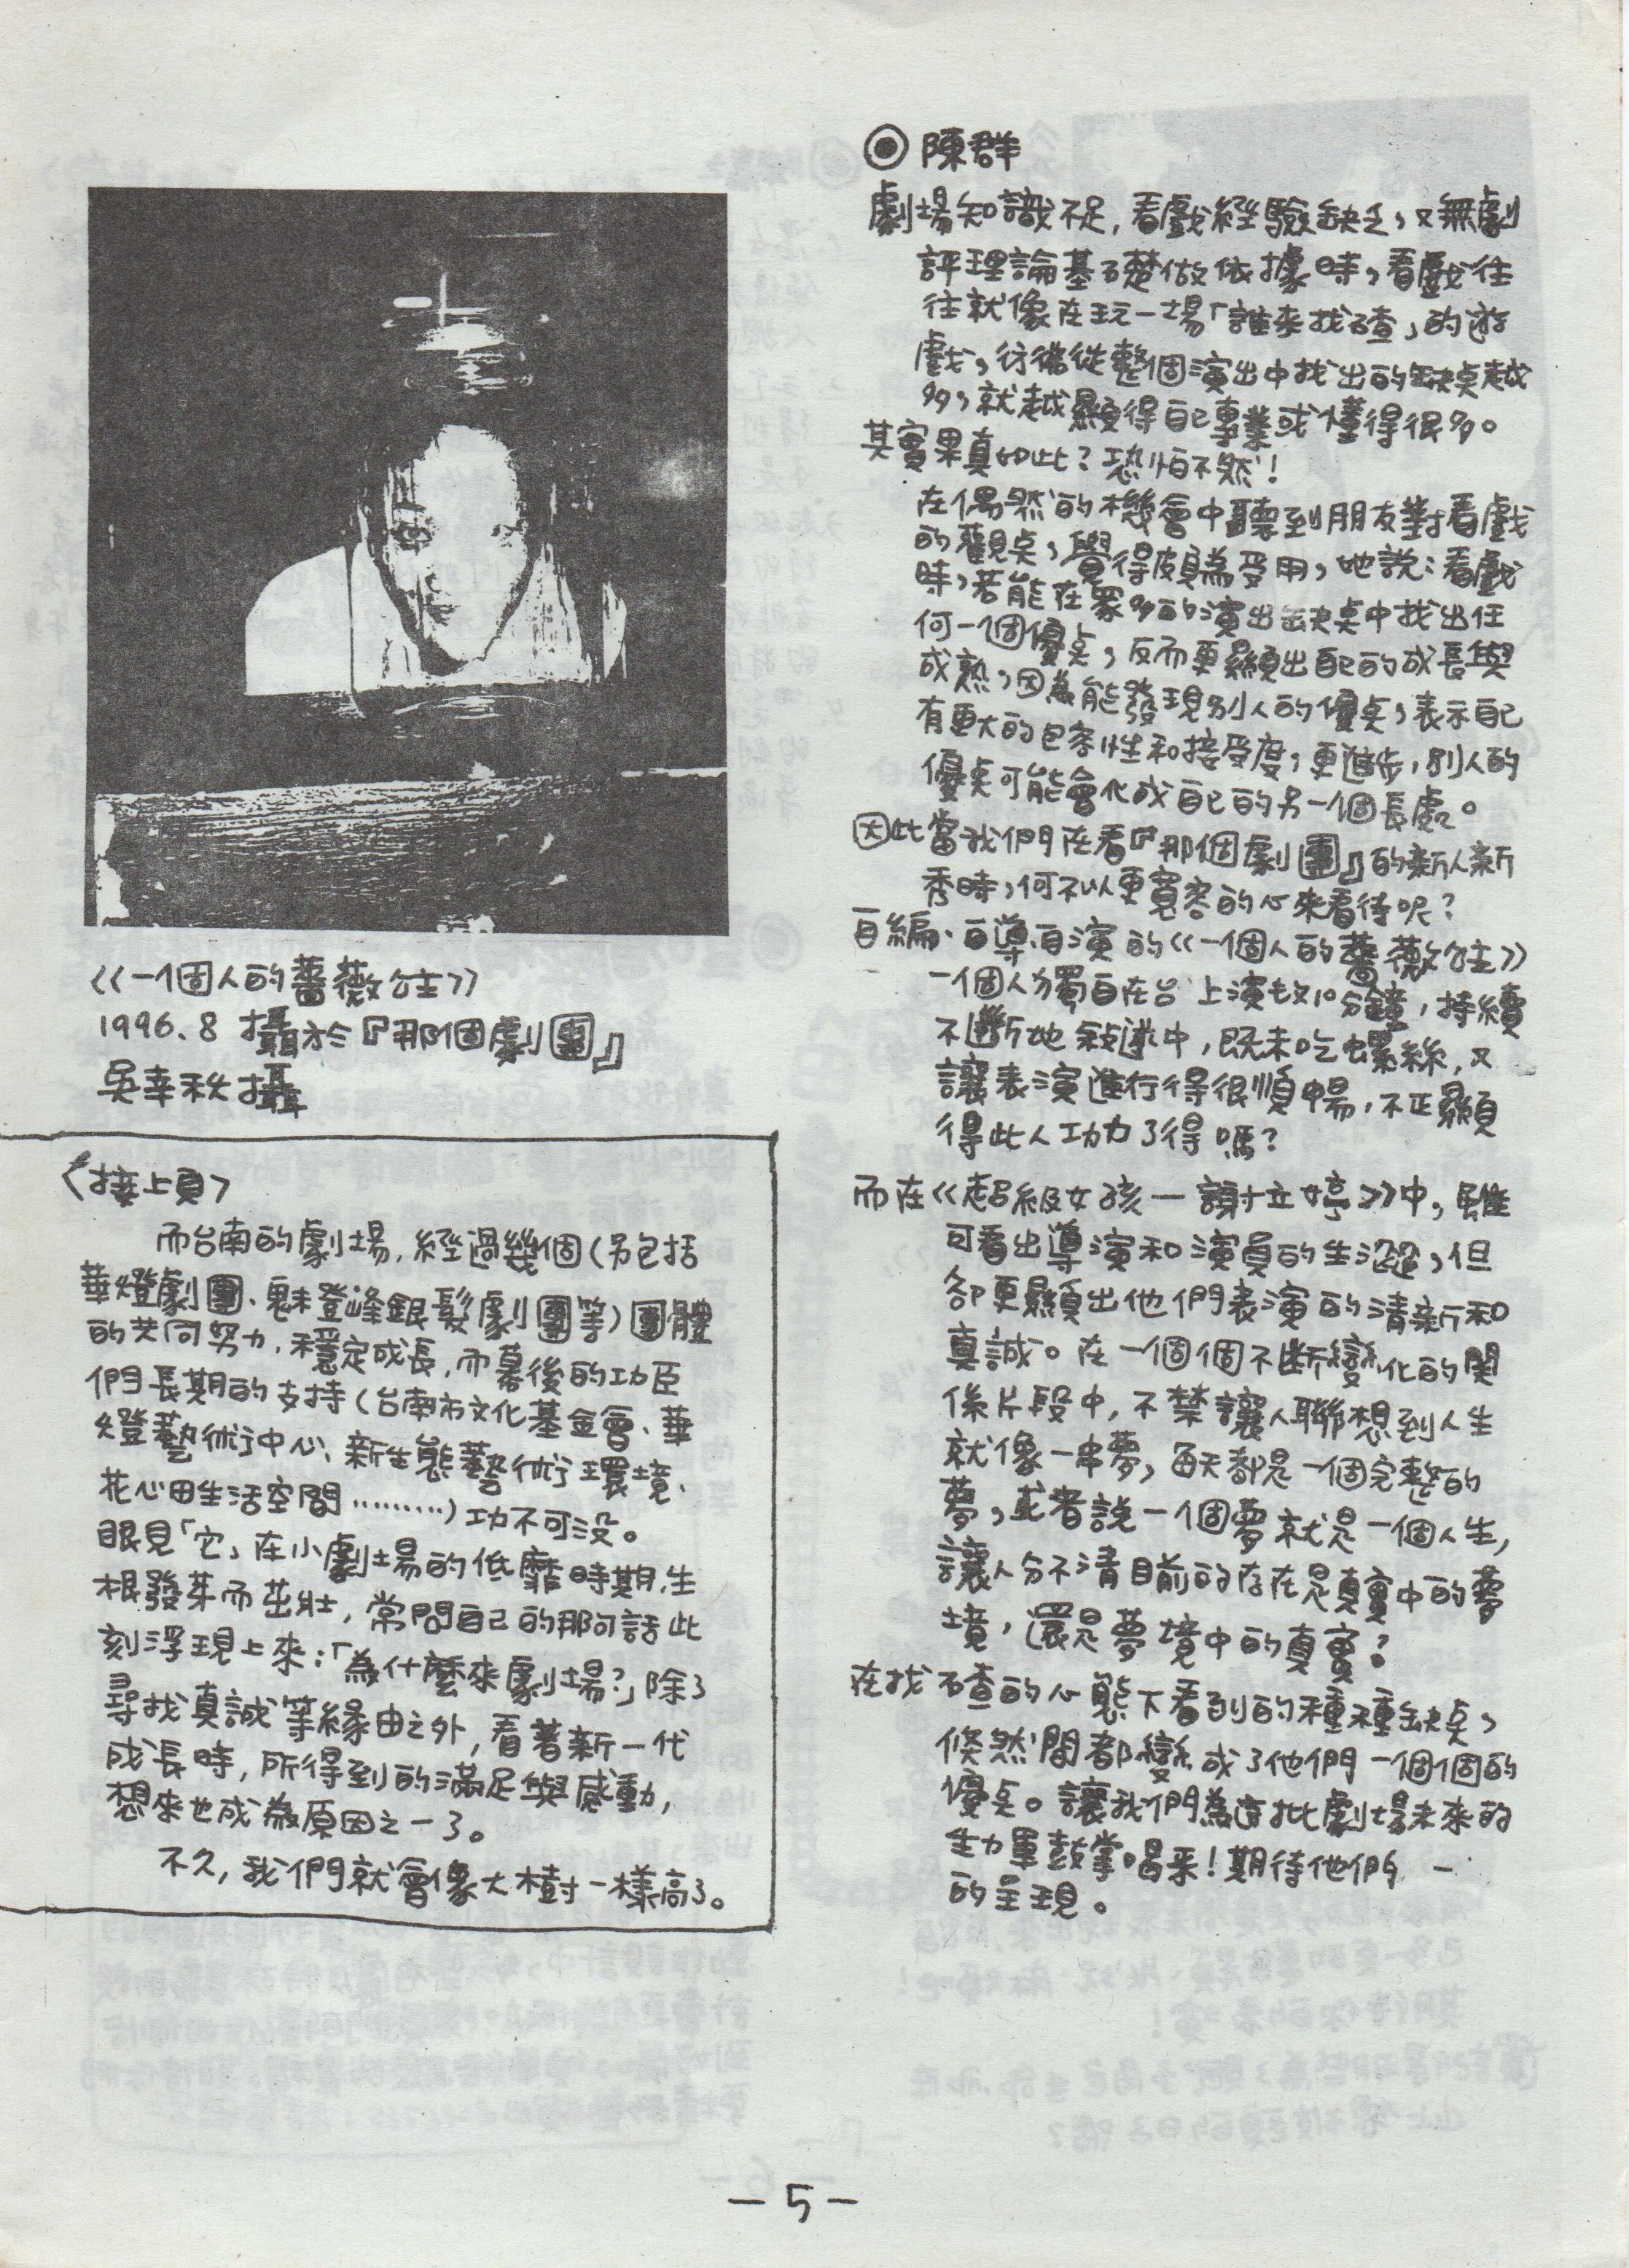 《一個人的薔薇公主》
1996.8 攝於『那個劇團』
吳幸秋攝
〈接上頁〉
而台南的劇場,經過幾個(另包括
華燈劇團、魅登峰銀髮劇團等)團體
的共同努力,穩定成長,而幕後的功臣
們長期的支持(台南市文化基金會、華
燈藝術中心、新生態藝術環境、
花心田生活空間………)功不可没。
眼見「它」在小劇場的低靡時期,生
根發芽而茁壯,常問自己的那句話此
刻浮現上來:「為什麼來劇場?」除了
尋找真誠等緣由之外,看著新一代
成長時,所得到的滿足與感動,
想來也成為原因之一了。
不久,我們就會像大樹一樣高了。
◉ 陳群
劇場知識不足,看戲經驗缺乏,又無劇
評理論基礎做依據時,看戲往
往就像在玩一場「誰來找碴」的遊
戲,彷彿從整個演出中找出的缺點越
多,就越顯得自己專業或懂得很多。
其實果真如此?恐怕不然!
在偶然的機會中聽到朋友對看戲
的觀點,覺得頗為受用,她說:看戲
時,若能在眾多的演出缺點中找出任
何一個優點,反而更顯出自己的成長與
成熟,因為能發現別人的優點,表示自己
有更大的包容性和接受度,更進步,別人的
優點可能會化成自己的另一個長處。
因此當我們在看『那個劇團』的新人新
秀時,何不以更寬容的心來看待呢?
自編、自導、自演的《一個人的薔薇公主》
一個人獨自在台上演數10分鐘,持續
不斷地敍述中,既未吃螺絲,又
讓表演進行得很順暢,不正顯
得此人功力了得嗎?
而在《超級女孩—謝立婷》中,雖
可看出導演和演員的生澀,但
卻更顯出他們表演的清新和
真誠。在一個個不斷變化的関
係片段中,不禁讓人聯想到人生
就像一串夢,每天都是一個完整的
夢,或者說一個夢就是一個人生,
讓人分不清目前的存在是真實中的夢
境,還是夢境中的真實?
在找碴的心態下看到的種種缺點,
倏然間都變成了他們一個個的
優點。讓我們為這批劇場未來的
生力軍鼓掌喝采!期待他們
的呈現。
— 5 —